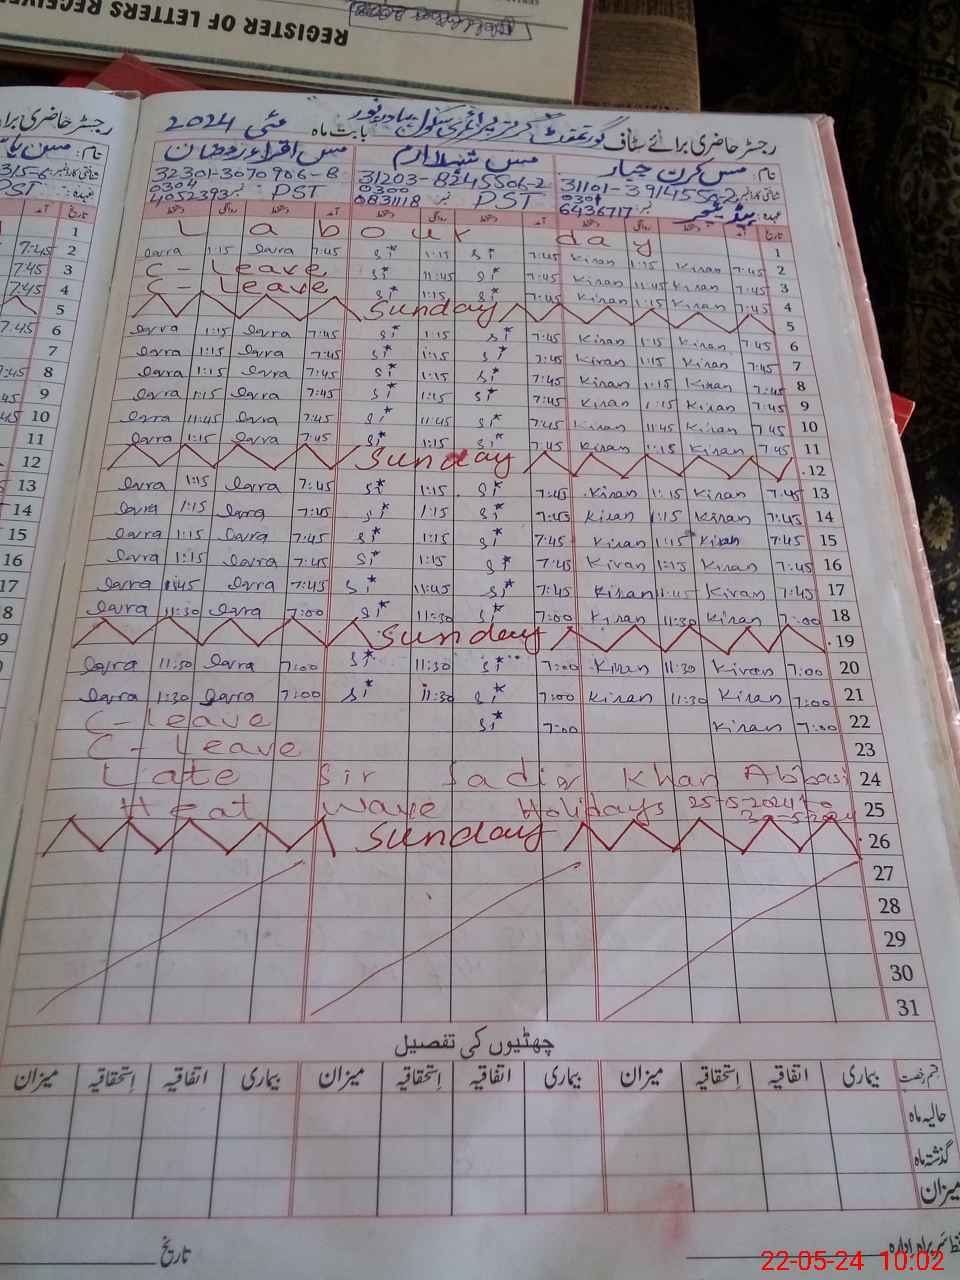 REGISTER OF LETTERS RECEIVE
رجسٹر حاضری برائے سٹاف گورنمنٹ گرلز پرائمری سکول بہادر پور بابت ماہ مئی 2024
نام: مس کرن جبار مس شہلا ارم مس اقراء رمضان
31203-8245506-2 32301-3070906-8
0301 6436717 ہیڈ ٹیچر 0300 0831118 PST 0304 4052393 PST
تاریخ آمد دستخط روانگی دستخط
Labour day 1
Iqra 1:15 Iqra 7:45 Si* 1:15 Si* 7:45 Kiran 1:15 Kiran 7:45 2
C-Leave Si* 11:45 Si* 7:45 Kiran 11:45 Kiran 7:45 3
C-Leave Si* 1:15 Si* 7:45 Kiran 1:15 Kiran 7:45 4
Sunday 5
Iqra 1:15 Iqra 7:45 Si* 1:15 Si* 7:45 Kiran 1:15 Kiran 7:45 6
Iqra 1:15 Iqra 7:45 Si* 1:15 Si* 7:45 Kiran 1:15 Kiran 7:45 7
Iqra 1:15 Iqra 7:45 Si* 1:15 Si* 7:45 Kiran 1:15 Kiran 7:45 8
Iqra 1:15 Iqra 7:45 Si* 1:15 Si* 7:45 Kiran 1:15 Kiran 7:45 9
Iqra 11:45 Iqra 7:45 Si* 11:45 Si* 7:45 Kiran 11:45 Kiran 7:45 10
Iqra 1:15 Iqra 7:45 Si* 1:15 Si* 7:45 Kiran 1:15 Kiran 7:45 11
Sunday 12
Iqra 1:15 Iqra 7:45 Si* 1:15 Si* 7:45 Kiran 1:15 Kiran 7:45 13
Iqra 1:15 Iqra 7:45 Si* 1:15 Si* 7:45 Kiran 1:15 Kiran 7:45 14
Iqra 1:15 Iqra 7:45 Si* 1:15 Si* 7:45 Kiran 1:15 Kiran 7:45 15
Iqra 1:15 Iqra 7:45 Si* 1:15 Si* 7:45 Kiran 1:15 Kiran 7:45 16
Iqra 11:45 Iqra 7:45 Si* 11:45 Si* 7:45 Kiran 11:45 Kiran 7:45 17
Iqra 11:30 Iqra 7:00 Si* 11:30 Si* 7:00 Kiran 11:30 Kiran 7:00 18
Sunday 19
Iqra 11:30 Iqra 7:00 Si* 11:30 Si* 7:00 Kiran 11:30 Kiran 7:00 20
Iqra 1:30 Iqra 7:00 Si* 11:30 Si* 7:00 Kiran 11:30 Kiran 7:00 21
C-Leave Si* 7:00 Kiran 7:00 22
C-Leave 23
Late Sir Sadiq Khan Abbasi 24
Heat Wave Holidays 25-5-2024 to 25
Sunday 26
27
28
29
30
31
چھٹیوں کی تفصیل
قسم رخصت بیماری اتفاقیہ استحقاقیہ میزان بیماری اتفاقیہ استحقاقیہ میزان بیماری اتفاقیہ استحقاقیہ میزان
حالیہ ماہ
گذشتہ ماہ
میزان
سربراہ ادارہ تاریخ
22-05-24 10:02